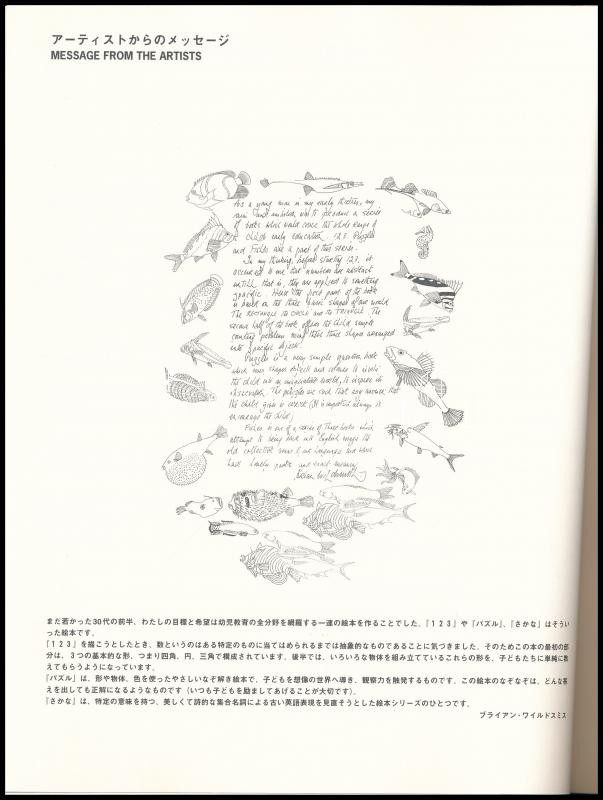 アーティストからのメッセージ
MESSAGE FROM THE ARTISTS
As a young man in my early thirties, my
main and ambition was to produce a series
of books which would cover the whole range of
a childs early education. 123, Puzzles
and Fishes are a part of this series.
In my thinking, before starting 123, it
occurred to me that numbers are abstract
untill, that is, they are applied to something
specific. Hence the first part of the book
is based on the three basic shapes of our world
The RECTANGLE the CIRCLE and the TRIANGLE. The
second half of the book offers the child simple
counting problems using these three shapes arranged
into specific objects.
Puzzles is a very simple question book
which uses shapes objects and colours to invite
the child into an imaginative world, to inspire
observation. The puzzles are such that any answer that
the child gives is correct (it is important always to
encourage the child)
Fishes is one of a series of three books which
attempt to bring back into English usage the
old collective nouns of our language and which
have lovely poetic and exact meaning.
Brian Wildsmith
まだ若かった30代の前半、わたしの目標と希望は幼児教育の全分野を網羅する一連の絵本を作ることでした。『123』や『パズル』、『さかな』はそうい
った絵本です。
『123』を描こうとしたとき、数というのはある特定のものに当てはめられるまでは抽象的なものであることに気づきました。そのためこの本の最初の部
分は、3つの基本的な形、つまり四角、円、三角で構成されています。後半では、いろいろな物体を組み立てているこれらの形を、子どもたちに単純に数
えてもらうようになっています。
『パズル』は、形や物体、色を使ったやさしいなぞ解き絵本で、子どもを想像の世界へ導き、観察力を触発するものです。この絵本のなぞなぞは、どんな答
えを出しても正解になるようなものです(いつも子どもを励ましてあげることが大切です)。
『さかな』は、特定の意味を持つ、美しくて詩的な集合名詞による古い英語表現を見直そうとした絵本シリーズのひとつです。
ブライアン・ワイルドスミス